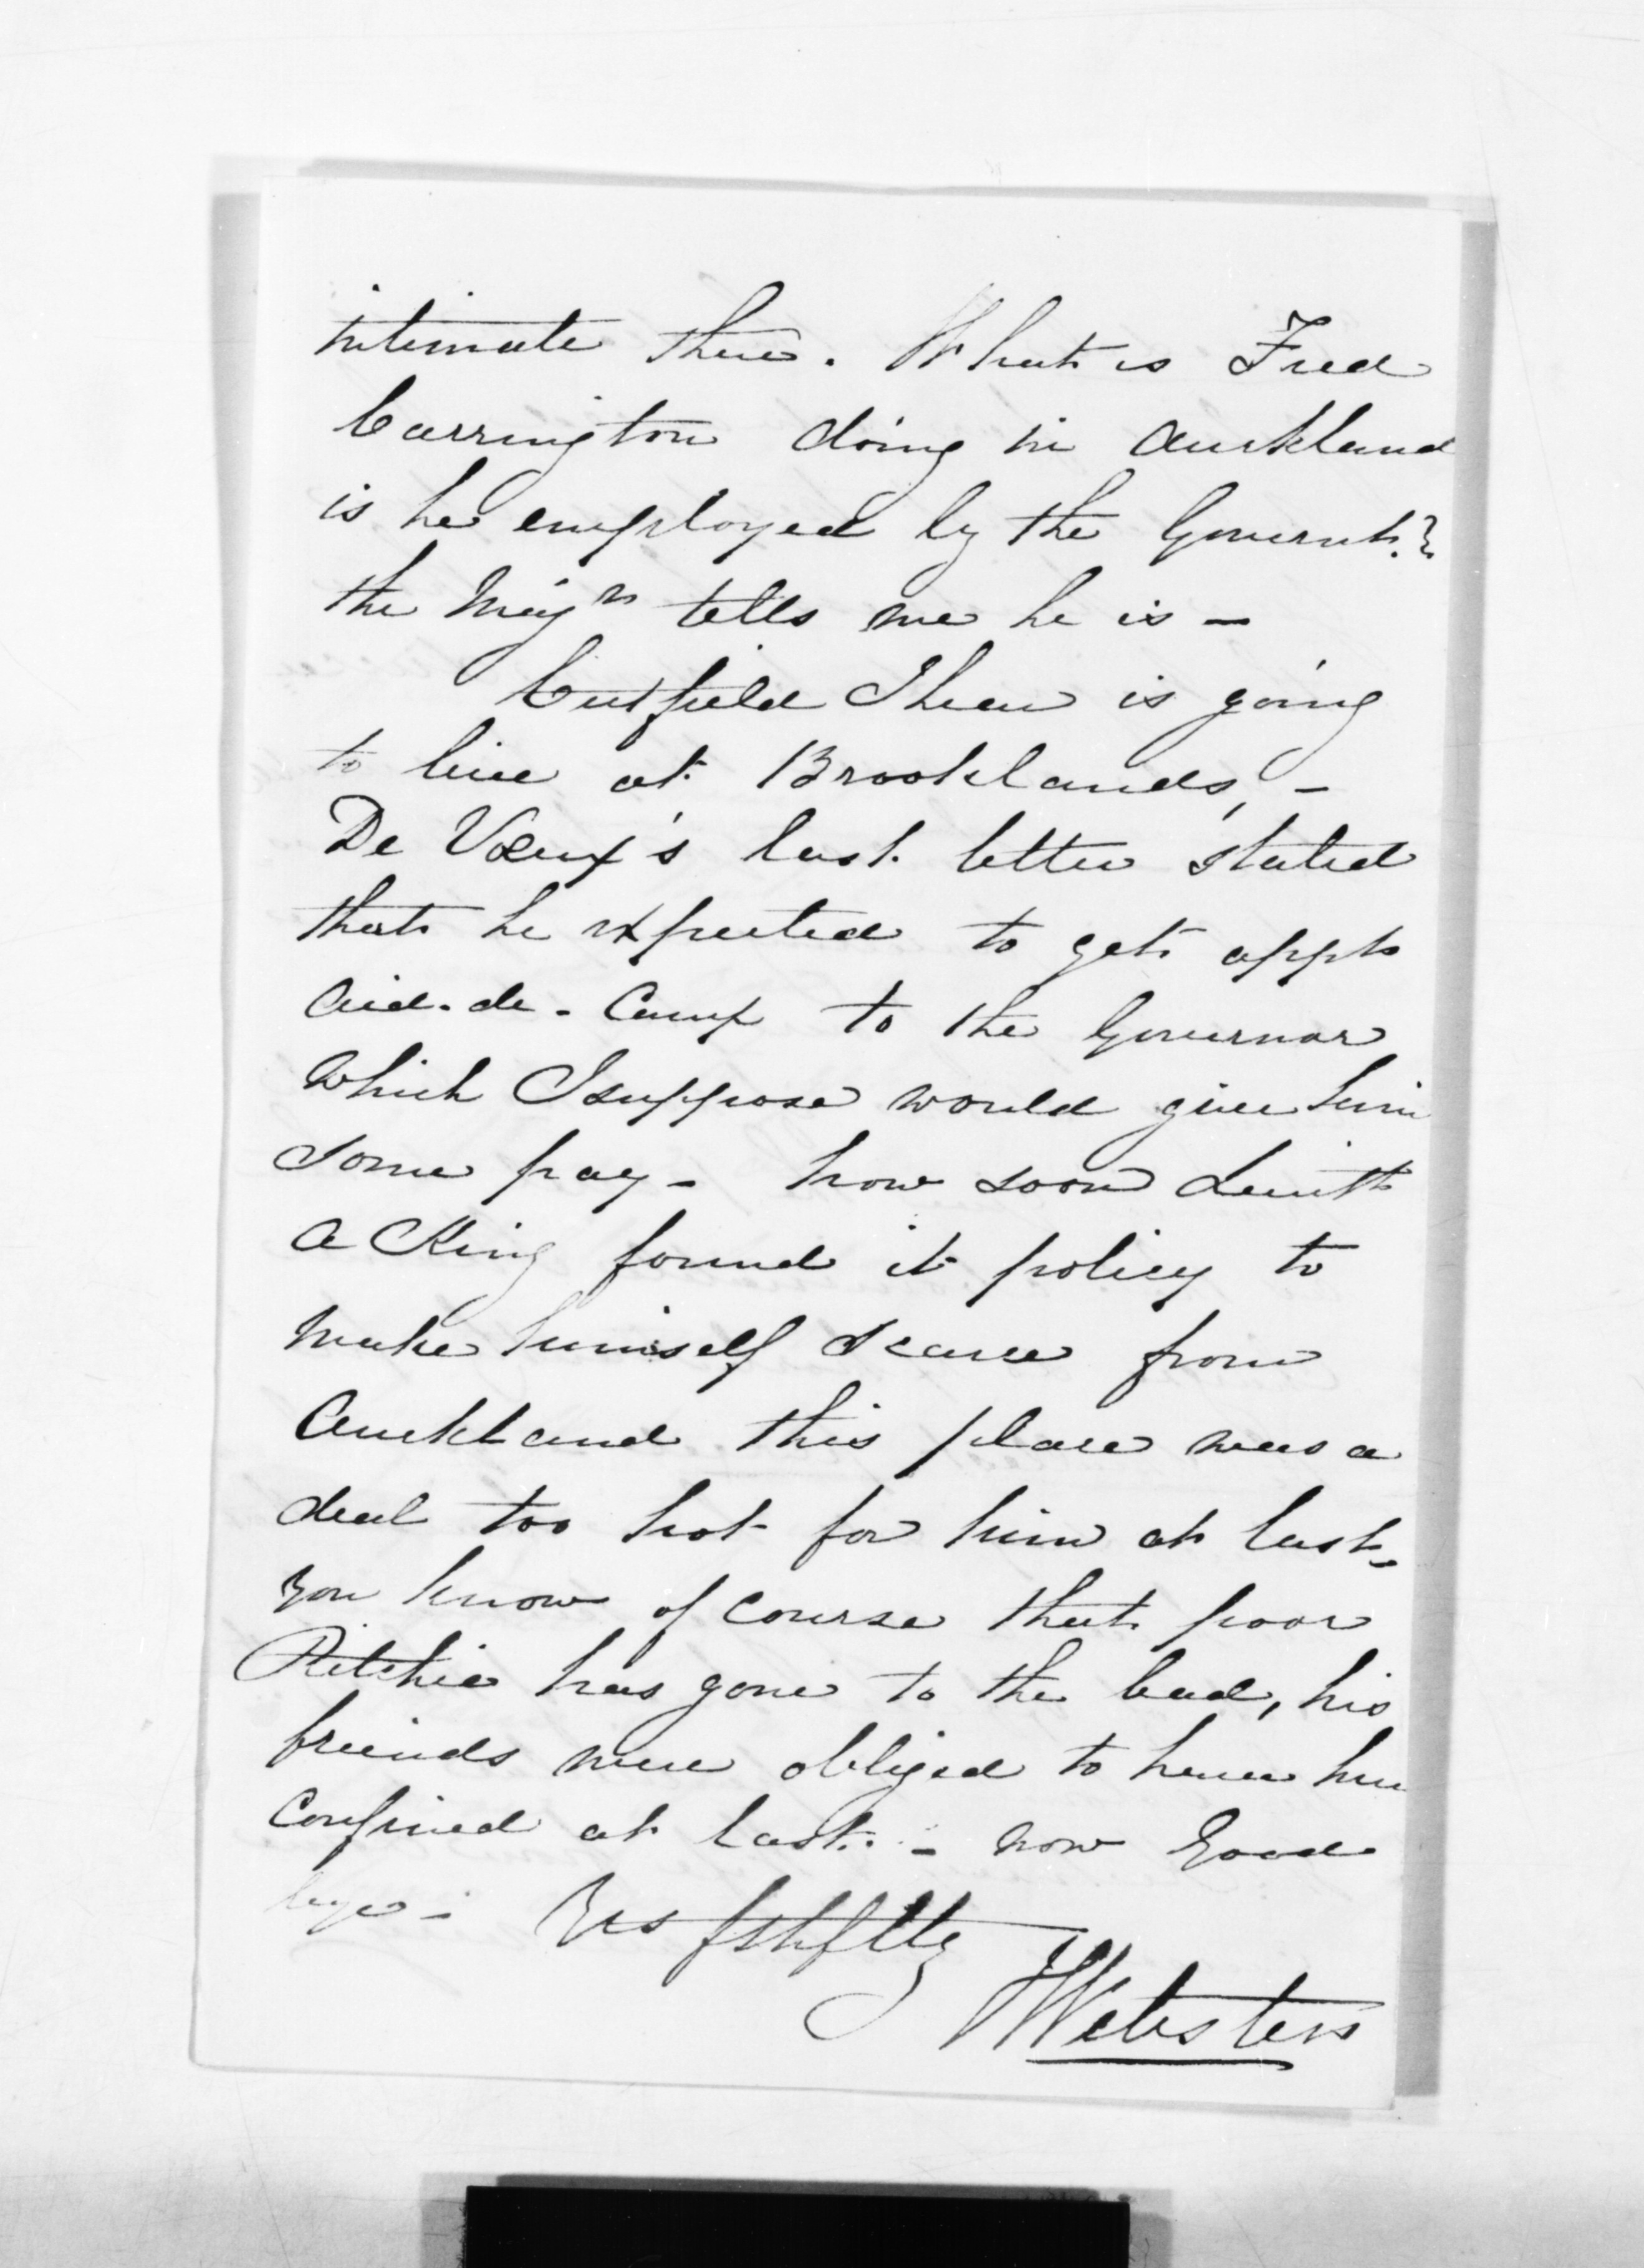 intimate there. What is Fred
Carrington doing in Auckland
is he employed by the Governt.?
the Majr tells me he is -
Cutfield I hear is going
to live at Brooklands, -
De Vœux's last letter stated
that he expected to get appt
Aid-de-Camp to the Governor
which I suppose would give him
some pay - how soon Lieutt
A King found it policy to
make himself scarce from
Auckland this place was a
deal too hot for him at last -
you know of course that poor
Ritchie has gone to the bad, his
friends were obliged to have him
confined at last. - now Good
bye - Yrs fthflly
Webster